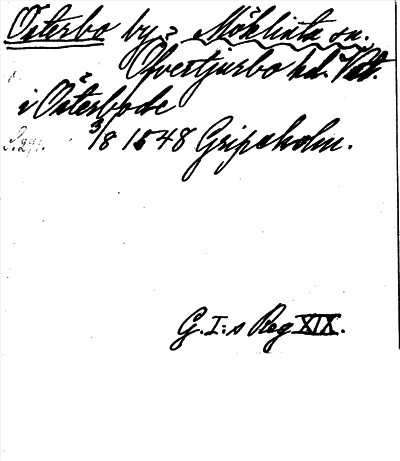 Österbo by, Möklinta sn.
Övertjurbo hd. Vstl.
i Österbode
3/8 1548 Gripsholm.
G. I:s Reg XIX.